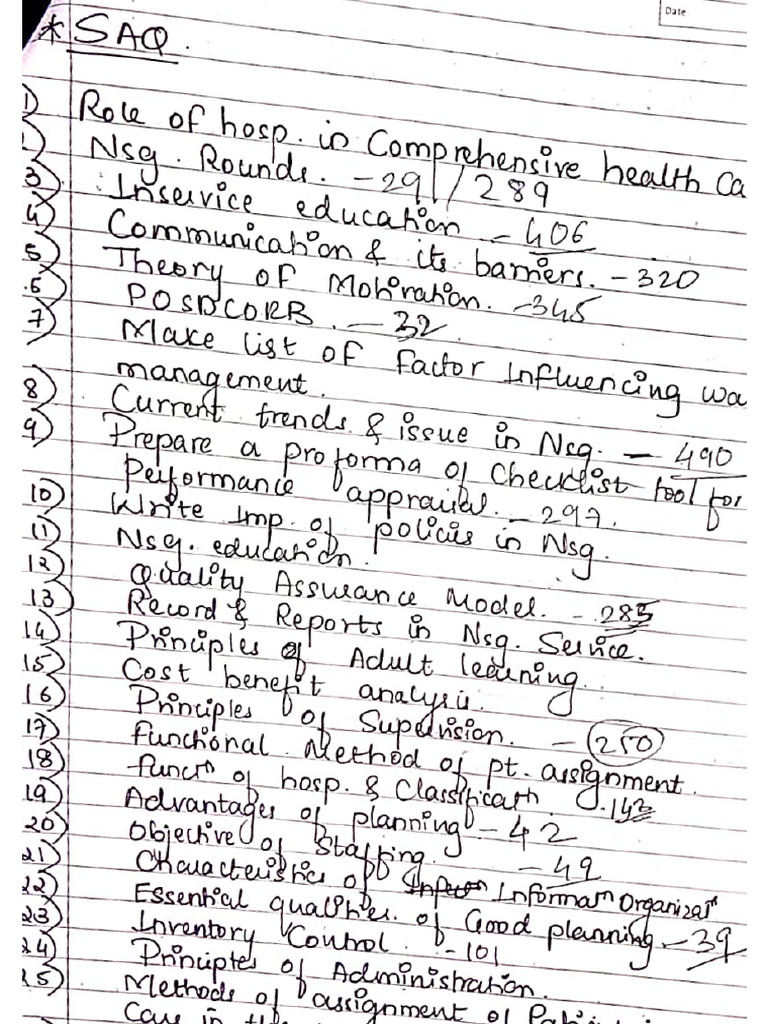 Date
* SAQ.
1) Role of hosp. in Comprehensive health Ca
) Nsg. Rounds. - 291/289
3) Inservice education - 406
4) Communication & its barriers. - 320
5) Theory of Motivation. - 345
6) POSDCORB. - 32
7) Make list of factor influencing wa
management.
8) Current trends & issue in Nsg. - 490
9) Prepare a proforma of Checklist tool for
Performance appraisal. - 297.
10) Write imp. of policies in Nsg.
11) Nsg. education.
12) Quality Assurance Model. - 285
13) Record & Reports in Nsg. Service.
14) Principles of Adult learning.
15) Cost benefit analysis.
16) Principles of Supervision. - 250
17) Functional Method of pt. assignment.
18) funcn of hosp. & Classificatn. 143
19) Advantages of planning - 42
20) Objective of Staffing. - 49
21) Characteristics of Informan Organizan
22) Essential qualities of Good planning. - 39
23) Inventory Control. - 101
24) Principles of Administration.
25) Methods of assignment of
Care in the